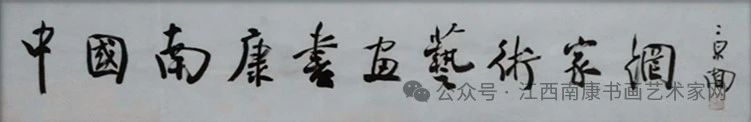 中國南康書画藝術家網
公众号·江西南康书画艺术家网